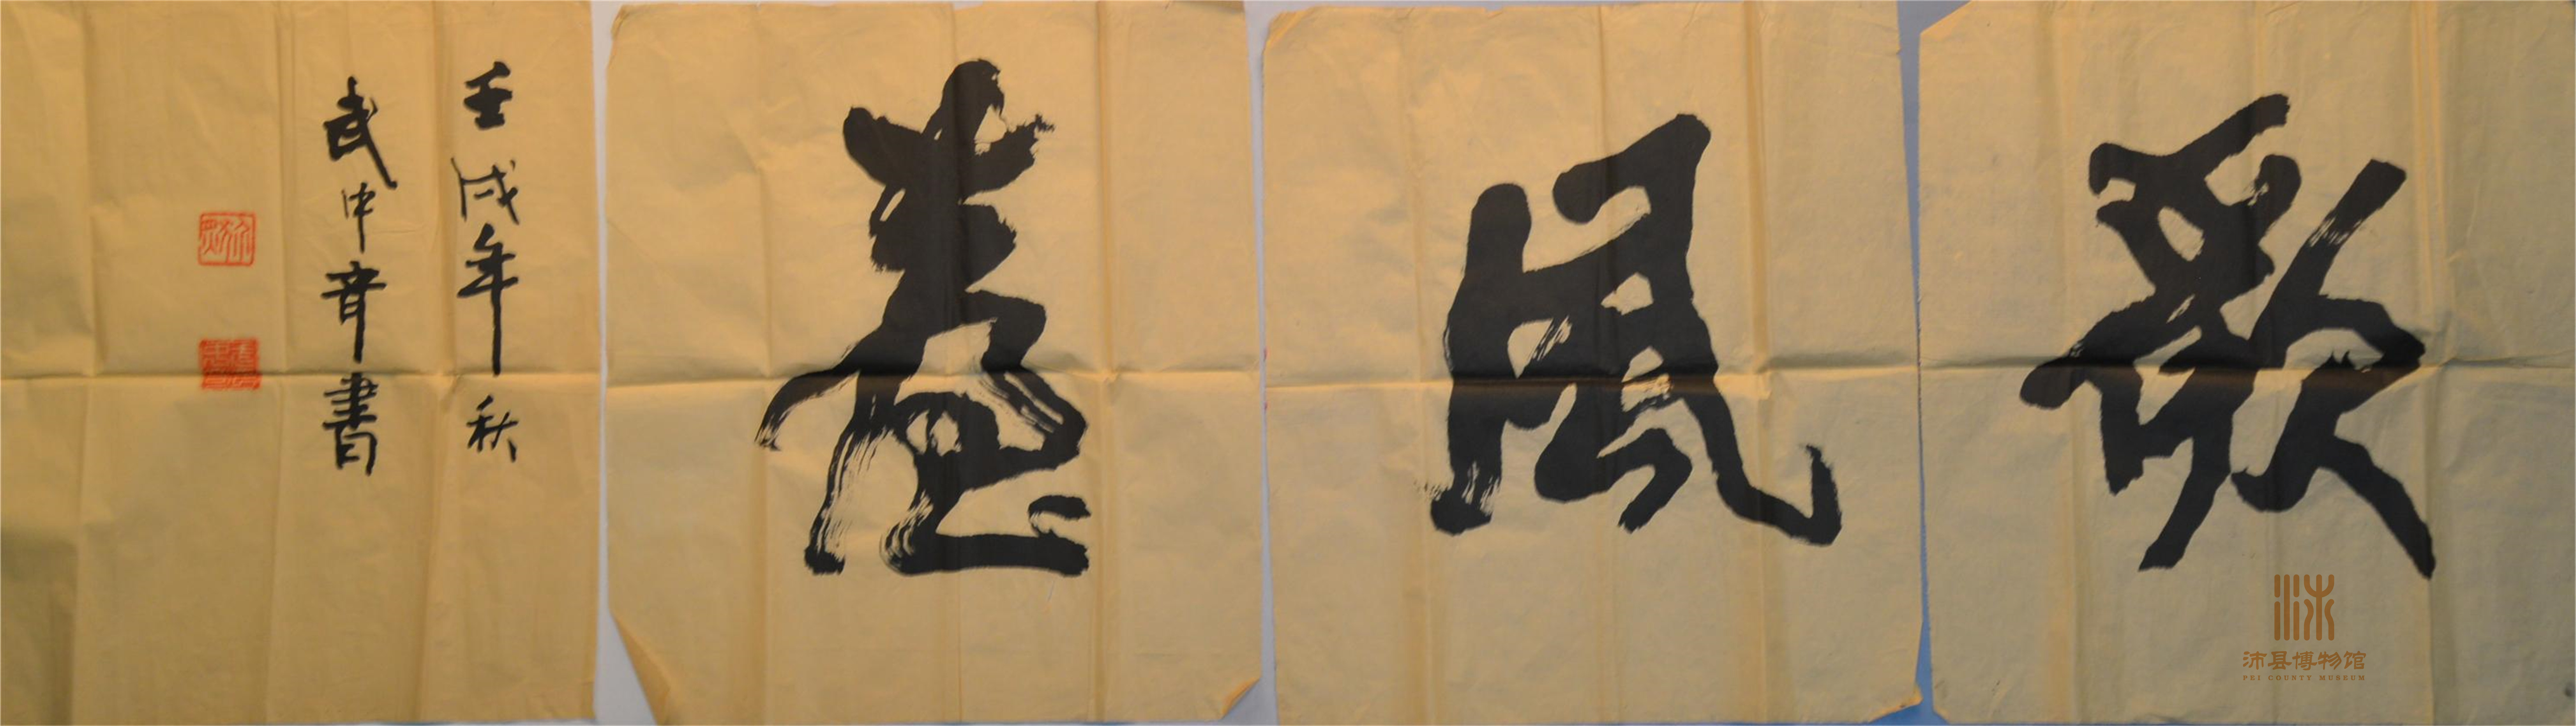 歌風臺
壬戌年秋
武中奇書
沛县博物馆
PEI COUNTY MUSEUM